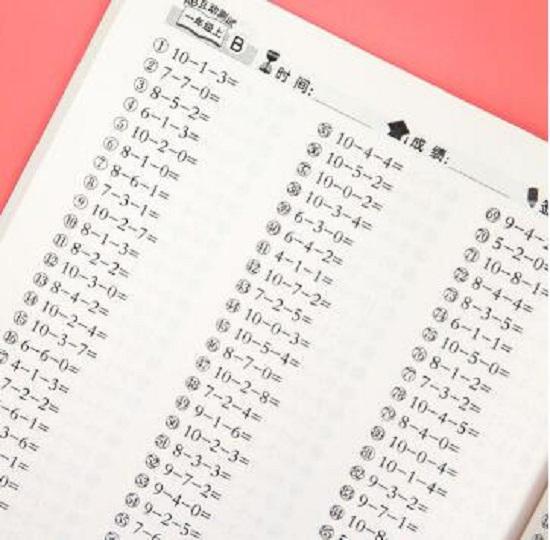 一年级上 B
时间:
成绩:
① 10-1-3=
② 7-7-0=
③ 8-5-2=
④ 6-1-3=
⑤ 10-2-0=
⑥ 8-1-0=
⑦ 8-6-1=
⑧ 7-3-1=
⑨ 10-2-7=
⑩ 8-1-3=
⑪ 8-2-2=
⑫ 10-3-0=
⑬ 8-4-2=
⑭ 10-2-4=
⑮ 10-3-7=
⑯ 6-6-0=
4-1-3=
7-2-2=
-6-1=
3-6=
-1=
0=
=
㉟ 10-4-4=
㊱ 10-5-2=
㊲ 10-0-2=
㊳ 10-3-4=
㊴ 6-3-0=
㊵ 6-4-2=
㊶ 4-1-1=
㊷ 10-7-2=
㊸ 7-2-5=
㊹ 10-0-3=
㊺ 10-5-4=
㊻ 8-7-0=
㊼ 10-2-8=
㊽ 7-2-4=
㊾ 9-1-6=
㊿ 10-2-3=
51 8-3-3=
52 9-7-2=
53 9-4-0=
54 9-2-5=
55 7-6
69 9-4-
70 5-2-0=
71 10-8-1=
72 8-4-4=
73 8-3-5=
74 6-1-1=
75 10-5-0=
76 8-1-2=
77 7-3-2=
78 10-4-5=
79 8-4-0=
80 10-0-4=
81 10-1-4=
82 9-3-2=
83 9-7-1=
84 10-8